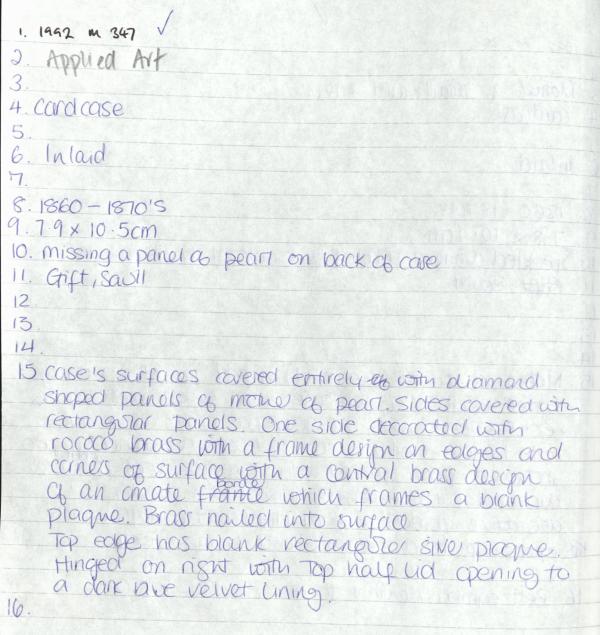 1. 1992 m 347 ✓
2. Applied Art
3.
4. Card case
5.
6. Inlaid
7.
8. 1860 - 1870's
9. 7.9 x 10.5cm
10. missing a panel of pearl on back of case
11. Gift, Saull
12
13
14.
15. Case's surfaces covered entirely with diamond
shaped panels of mother of pearl. Sides covered with
rectangular panels. One side decorated with
rococo brass with a frame design on edges and
corners of surface with a central brass design
of an ornate border which frames a blank
plaque. Brass nailed into surface
Top edge has blank rectangular silver plaque.
Hinged on right with top half lid opening to
a dark blue velvet lining.
16.